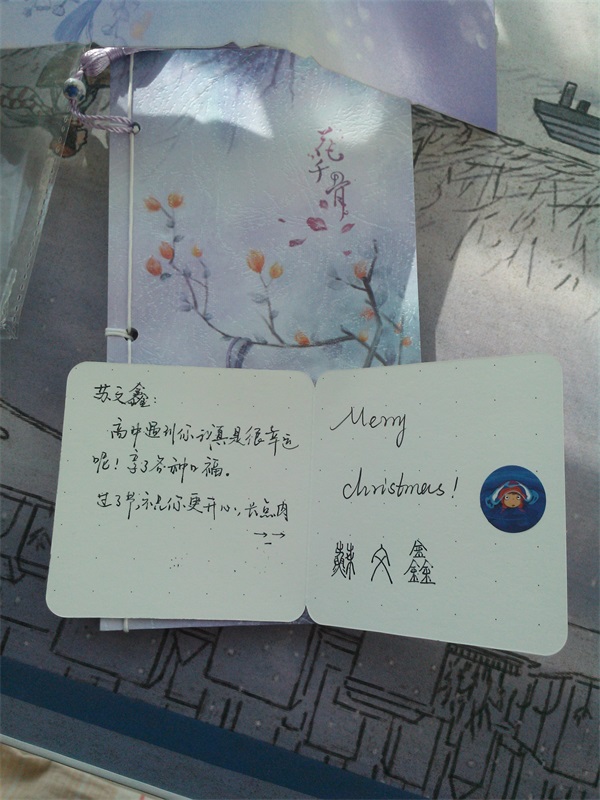 花千骨
苏文鑫:
高中遇到你认真是很幸运
呢!享了各种口福。
过了节,祝你更开心,长点肉
→_→
Merry
christmas!
蘇文鑫